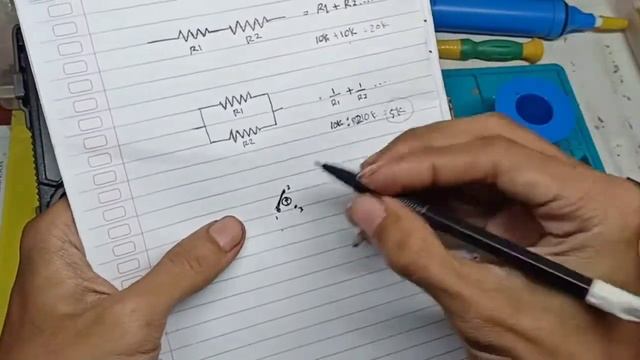 = R1 + R2...
R1 R2
10k + 10k = 20k
R1
R2
1/R1 + 1/R2 ...
10k : 10k = 5k
2
1 3